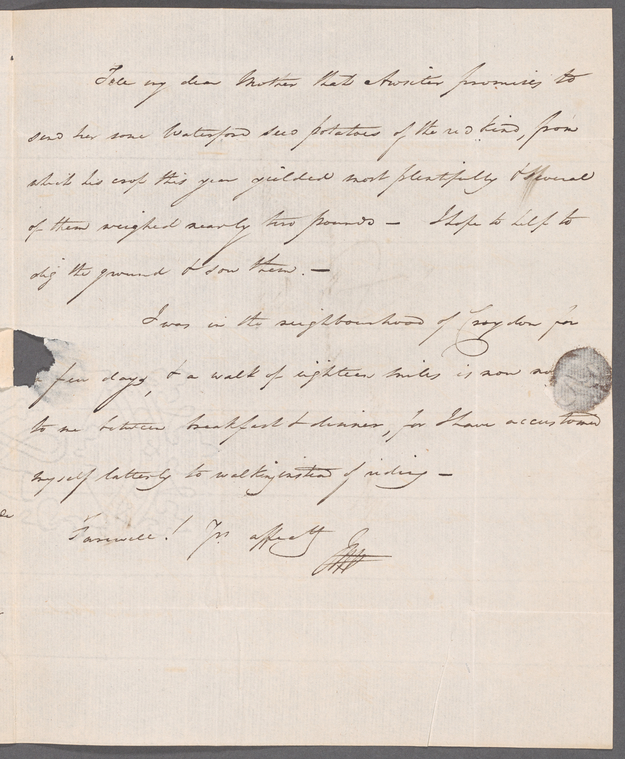 Tell my dear Mother that Awsiter promises to
send her some Waterford seed potatoes of the red kind, from
which his crop this year yielded most plentifully & several
of them weighed nearly two pounds — I hope to help to
dig the ground & sow them. —
I was in the neighbourhood of Croydon for
few days, & a walk of eighteen miles is now
to me between breakfast & dinner, for I have accustomed
myself latterly to walking instead of riding —
Farewell! Yrs affectly